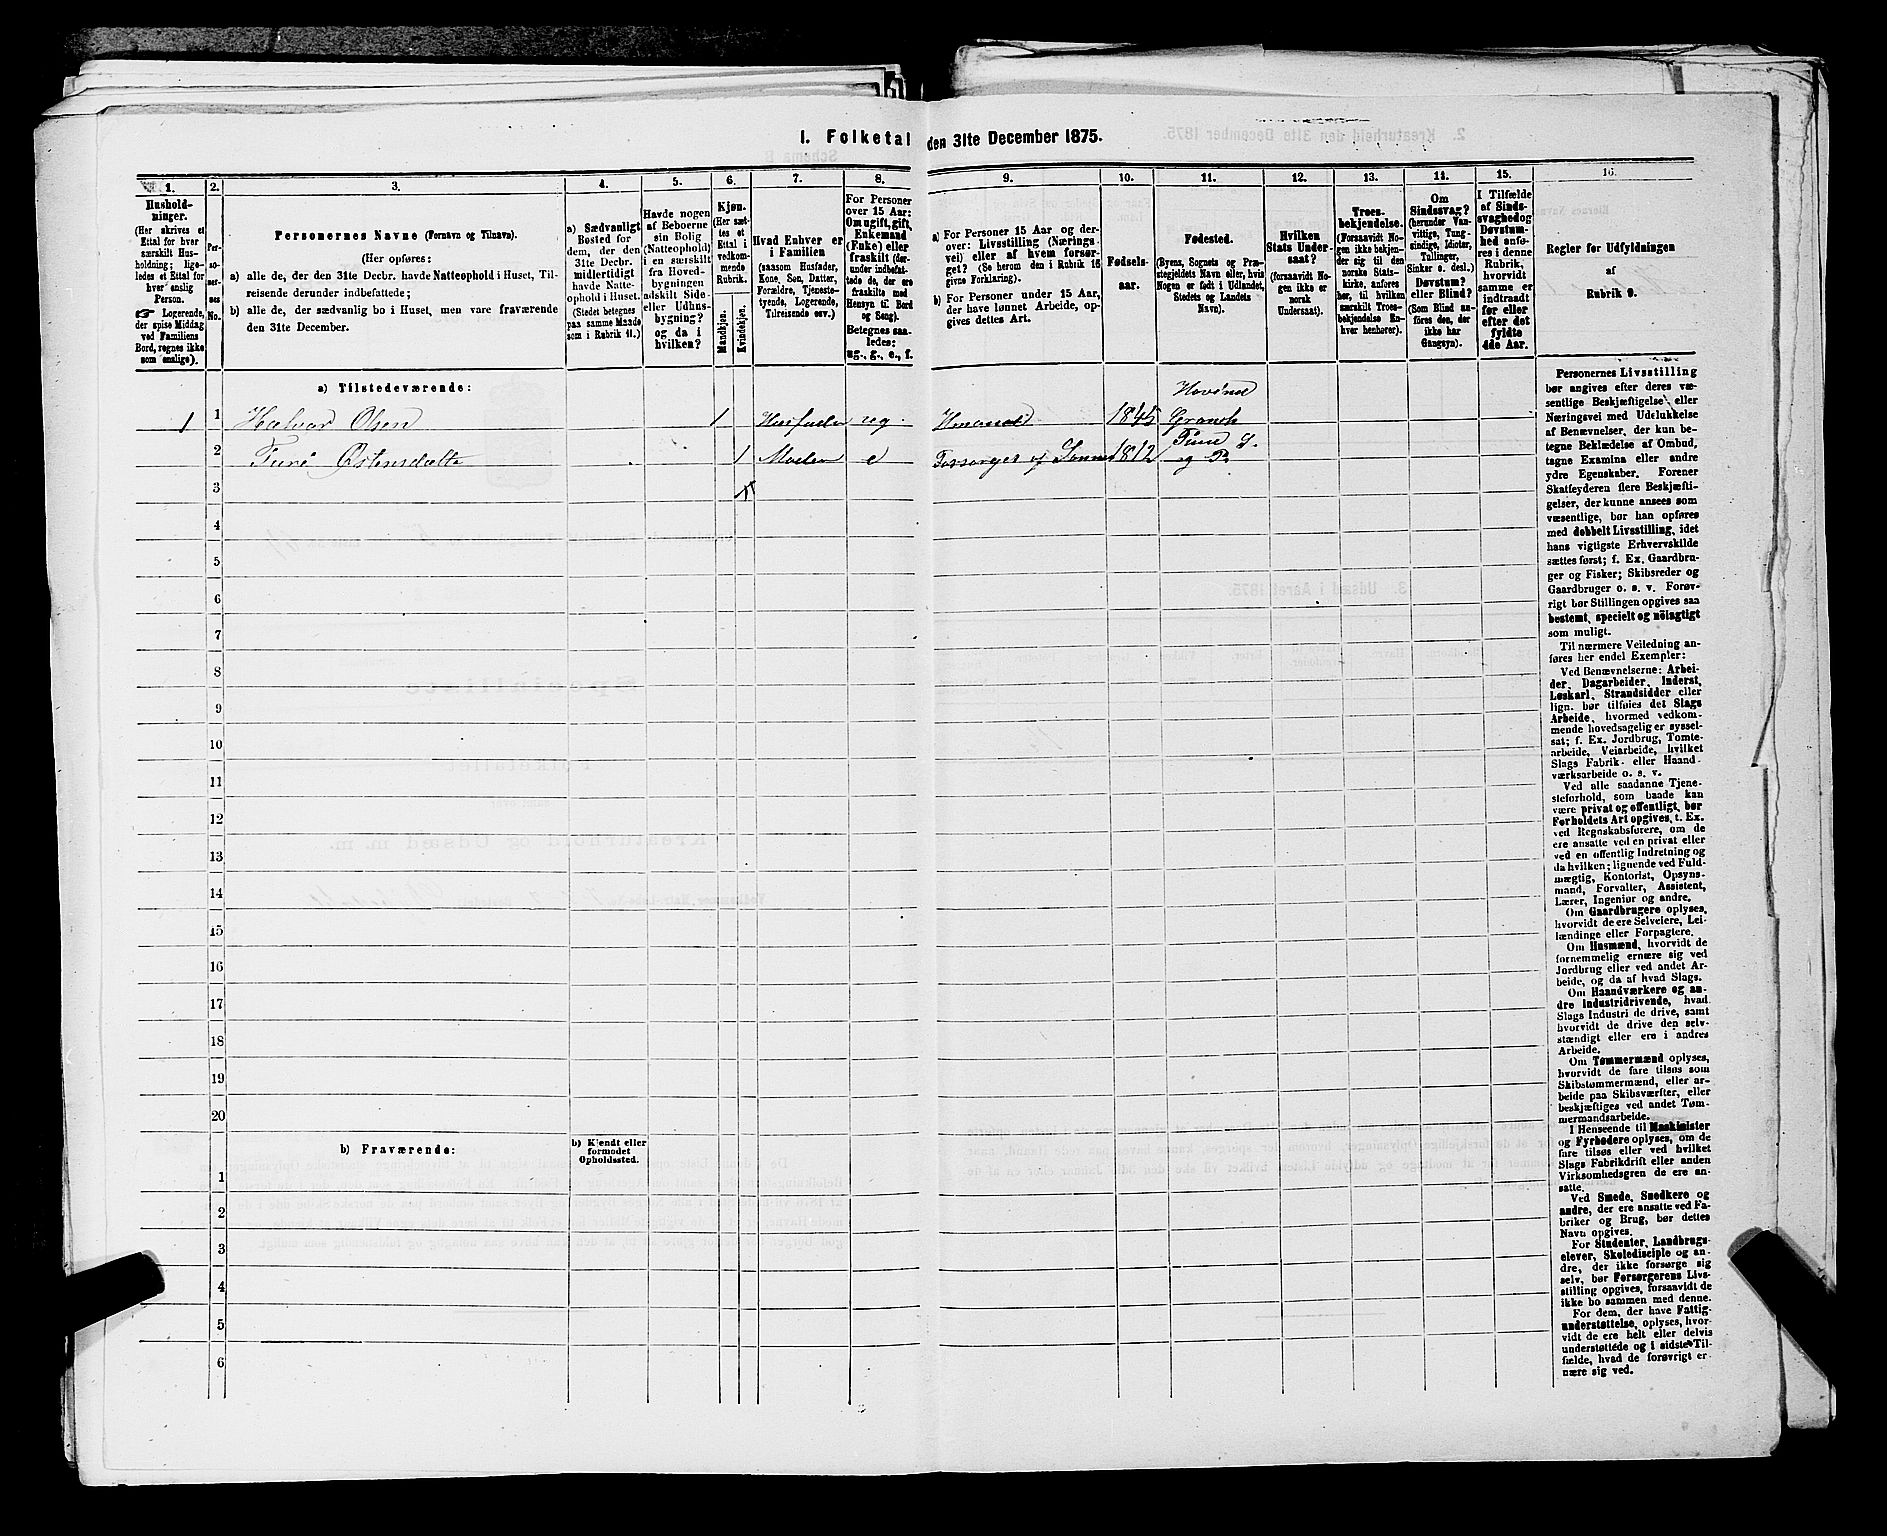 1. Folketal den 31te December 1875.
1. 2. 3. 4. 5. 6. 7. 8. 9. 10. 11. 12. 13. 14. 15. 16.
Hushold-
ninger.
(Her skrives et
Ettal for hver
særskilt Hus-
holdning; lige-
ledes et Ettal for
hver enslig
Person.
☛ Logerende,
der spise Middag
ved Familiens
Bord, regnes ikke
som enslige).
Per-
so-
ner-
nes
No.
Personernes Navne (Fornavn og Tilnavn).
(Her opføres:
a) alle de, der den 31te Decbr. havde Natteophold i Huset, Til-
reisende derunder indbefattede;
b) alle de, der sædvanlig bo i Huset, men vare fraværende
den 31te December.
a) Sædvanligt
Bosted for
dem, der den
31te Decbr.
midlertidigt
havde Natte-
ophold i Huset.
(Stedet betegnes
paa samme Maade
som i Rubrik 11.)
Havde nogen
af Beboerne
sin Bolig
(Natteophold)
i en særskilt
fra Hoved-
bygningen
adskilt Side-
eller Udhus-
bygning?
og da i
hvilken?
Kjøn.
(Her sæt-
tes et
Ettal i
vedkom-
mende
Rubrik.
Mandkjøn.
Kvindekjøn.
Hvad Enhver er
i Familien
(saasom Husfader,
Kone, Søn, Datter,
Forældre, Tjeneste-
tyende, Logerende,
Tilreisende osv.)
For Personer
over 15 Aar:
Om ugift, gift,
Enkemand
(Enke) eller
fraskilt (der-
under indbefat-
tede de, der ere
fraskilte med
Hensyn til Bord
og Seng).
Betegnes saa-
ledes:
ug., g., e., f.
a) For Personer 15 Aar og der-
over: Livsstilling (Nærings-
vei) eller af hvem forsør-
get? (Se herom den i Rubrik 16
givne Forklaring).
b) For Personer under 15 Aar,
der have lønnet Arbeide, op-
gives dettes Art.
Fødsels-
aar.
Fødested.
(Byens, Sognets og Præ-
stegjeldets Navn eller, hvis
Nogen er født i Udlandet,
Stedets og Landets
Navn).
Hvilken
Stats Under-
saat?
(forsaavidt No-
gen ikke er
norsk
Undersaat).
Troes-
bekjendelse.
(Forsaavidt No-
gen ikke bekjen-
der sig til den
norske Stats-
kirke, anføres
her, til hvilken
særskilt Troes-
bekjendelse En-
hver henhører).
Om
Sindssvag?
(herunder Van-
vittige, Tung-
sindige, Idioter,
Tullinger,
Sinker o. desl.)
Døvstum?
eller Blind?
(Som Blind an-
føres den, der
ikke har
Gangsyn).
I Tilfælde
af Sinds-
svaghed og
Døvstum-
hed anfø-
res i denne
Rubrik,
hvorvidt
samme er
indtraadt
før eller
efter det
fyldte
4de Aar.
Regler for Udfyldningen
af
Rubrik 9.
a) Tilstedeværende:
Hovind
1 1 Halvor Olsen 1 Husfader ug. 1845 Gransh
2 Turi Østensdatter 1 Moder e Forsørges af Sønnen 1812 Tinn S.
og Pr
3
4
5
6
7
8
9
10
11
12
13
14
15
16
17
18
19
20
b) Fraværende:
b) Kjendt eller
formodet
Opholdssted.
1
2
3
4
5
6
Personernes Livsstilling
bør angives efter deres væ-
sentlige Beskjæftigelse eller
Næringsvei med Udelukkelse
af Benævnelser, der kun be-
tegne Beklædelse af Ombud,
tagne Examina eller andre
ydre Egenskaber. Forener
Skatteyderen flere Beskjæfti-
gelser, der kunne ansees som
væsentlige, bør han opføres
med dobbelt Livsstilling, idet
hans vigtigste Erhvervskilde
sættes først; f. Ex. Gaardbru-
ger og Fisker; Skibsreder og
Gaardbruger o. s. v. Forøv-
rigt bør Stillingen opgives saa
bestemt, specielt og nöiagtigt
som muligt.
Til nærmere Veiledning an-
føres her endel Exempler:
Ved Benævnelserne: Arbei-
der, Dagarbeider, Inderst,
Løskarl, Strandsidder eller
lign. bør tilføies det Slags
Arbeide, hvormed vedkom-
mende hovedsagelig er syssel-
sat; f. Ex. Jordbrug, Tomte-
arbeide, Veiarbeide, hvilket
Slags Fabrik- eller Haand-
værksarbeide o. s. v.
Ved alle saadanne Tjene-
steforhold, som baade kan
være privat og offentligt, bør
Forholdets Art opgives, t. Ex.
ved Regnskabsførere, om de
ere ansatte ved en privat eller
ved en offentlig Indretning og
da hvilken; lignende ved Fuld-
mægtig, Kontorist, Opsyns-
mand, Forvalter, Assistent,
Lærer, Ingeniør og andre.
Om Gaardbrugere oplyses,
hvorvidt de ere Selveiere, Lei-
lændinge eller Forpagtere.
Om Husmænd, hvorvidt de
fornemmelig ernære sig ved
Jordbrug eller ved andet Ar-
beide, og da af hvad Slags.
Om Haandværkere og an-
dre Industridrivende, hvad
Slags Industri de drive, samt
hvorvidt de drive den selv-
stændigt eller ere i andres
Arbeide.
Om Tømmermænd oplyses,
hvorvidt de fare tilsøs som
Skibstømmermænd, eller ar-
beide paa Skibsværfter, eller
beskjæftiges ved andet Tøm-
mermandsarbeide.
I Henseende til Maskinister
og Fyrbødere oplyses, om de
fare tilsøs eller ved hvilket
Slags Fabrikdrift eller anden
Virksomhedsgren de ere an-
satte.
Ved Smede, Snedkere og
andre, der ere ansatte ved Fa-
briker og Brug, bør dettes
Navn opgives.
For Studenter, Landbrugs-
elever, Skoledisciple og an-
dre, der ikke forsørge sig
selv, bør Forsørgerens Livs-
stilling opgives, forsaavidt de
ikke bo sammen med denne.
For dem, der have Fattig-
understøttelse, oplyses, hvor-
vidt de ere helt eller delvis
understøttede og i sidste Til-
fælde, hvad de forøvrigt er-
nære sig ved.